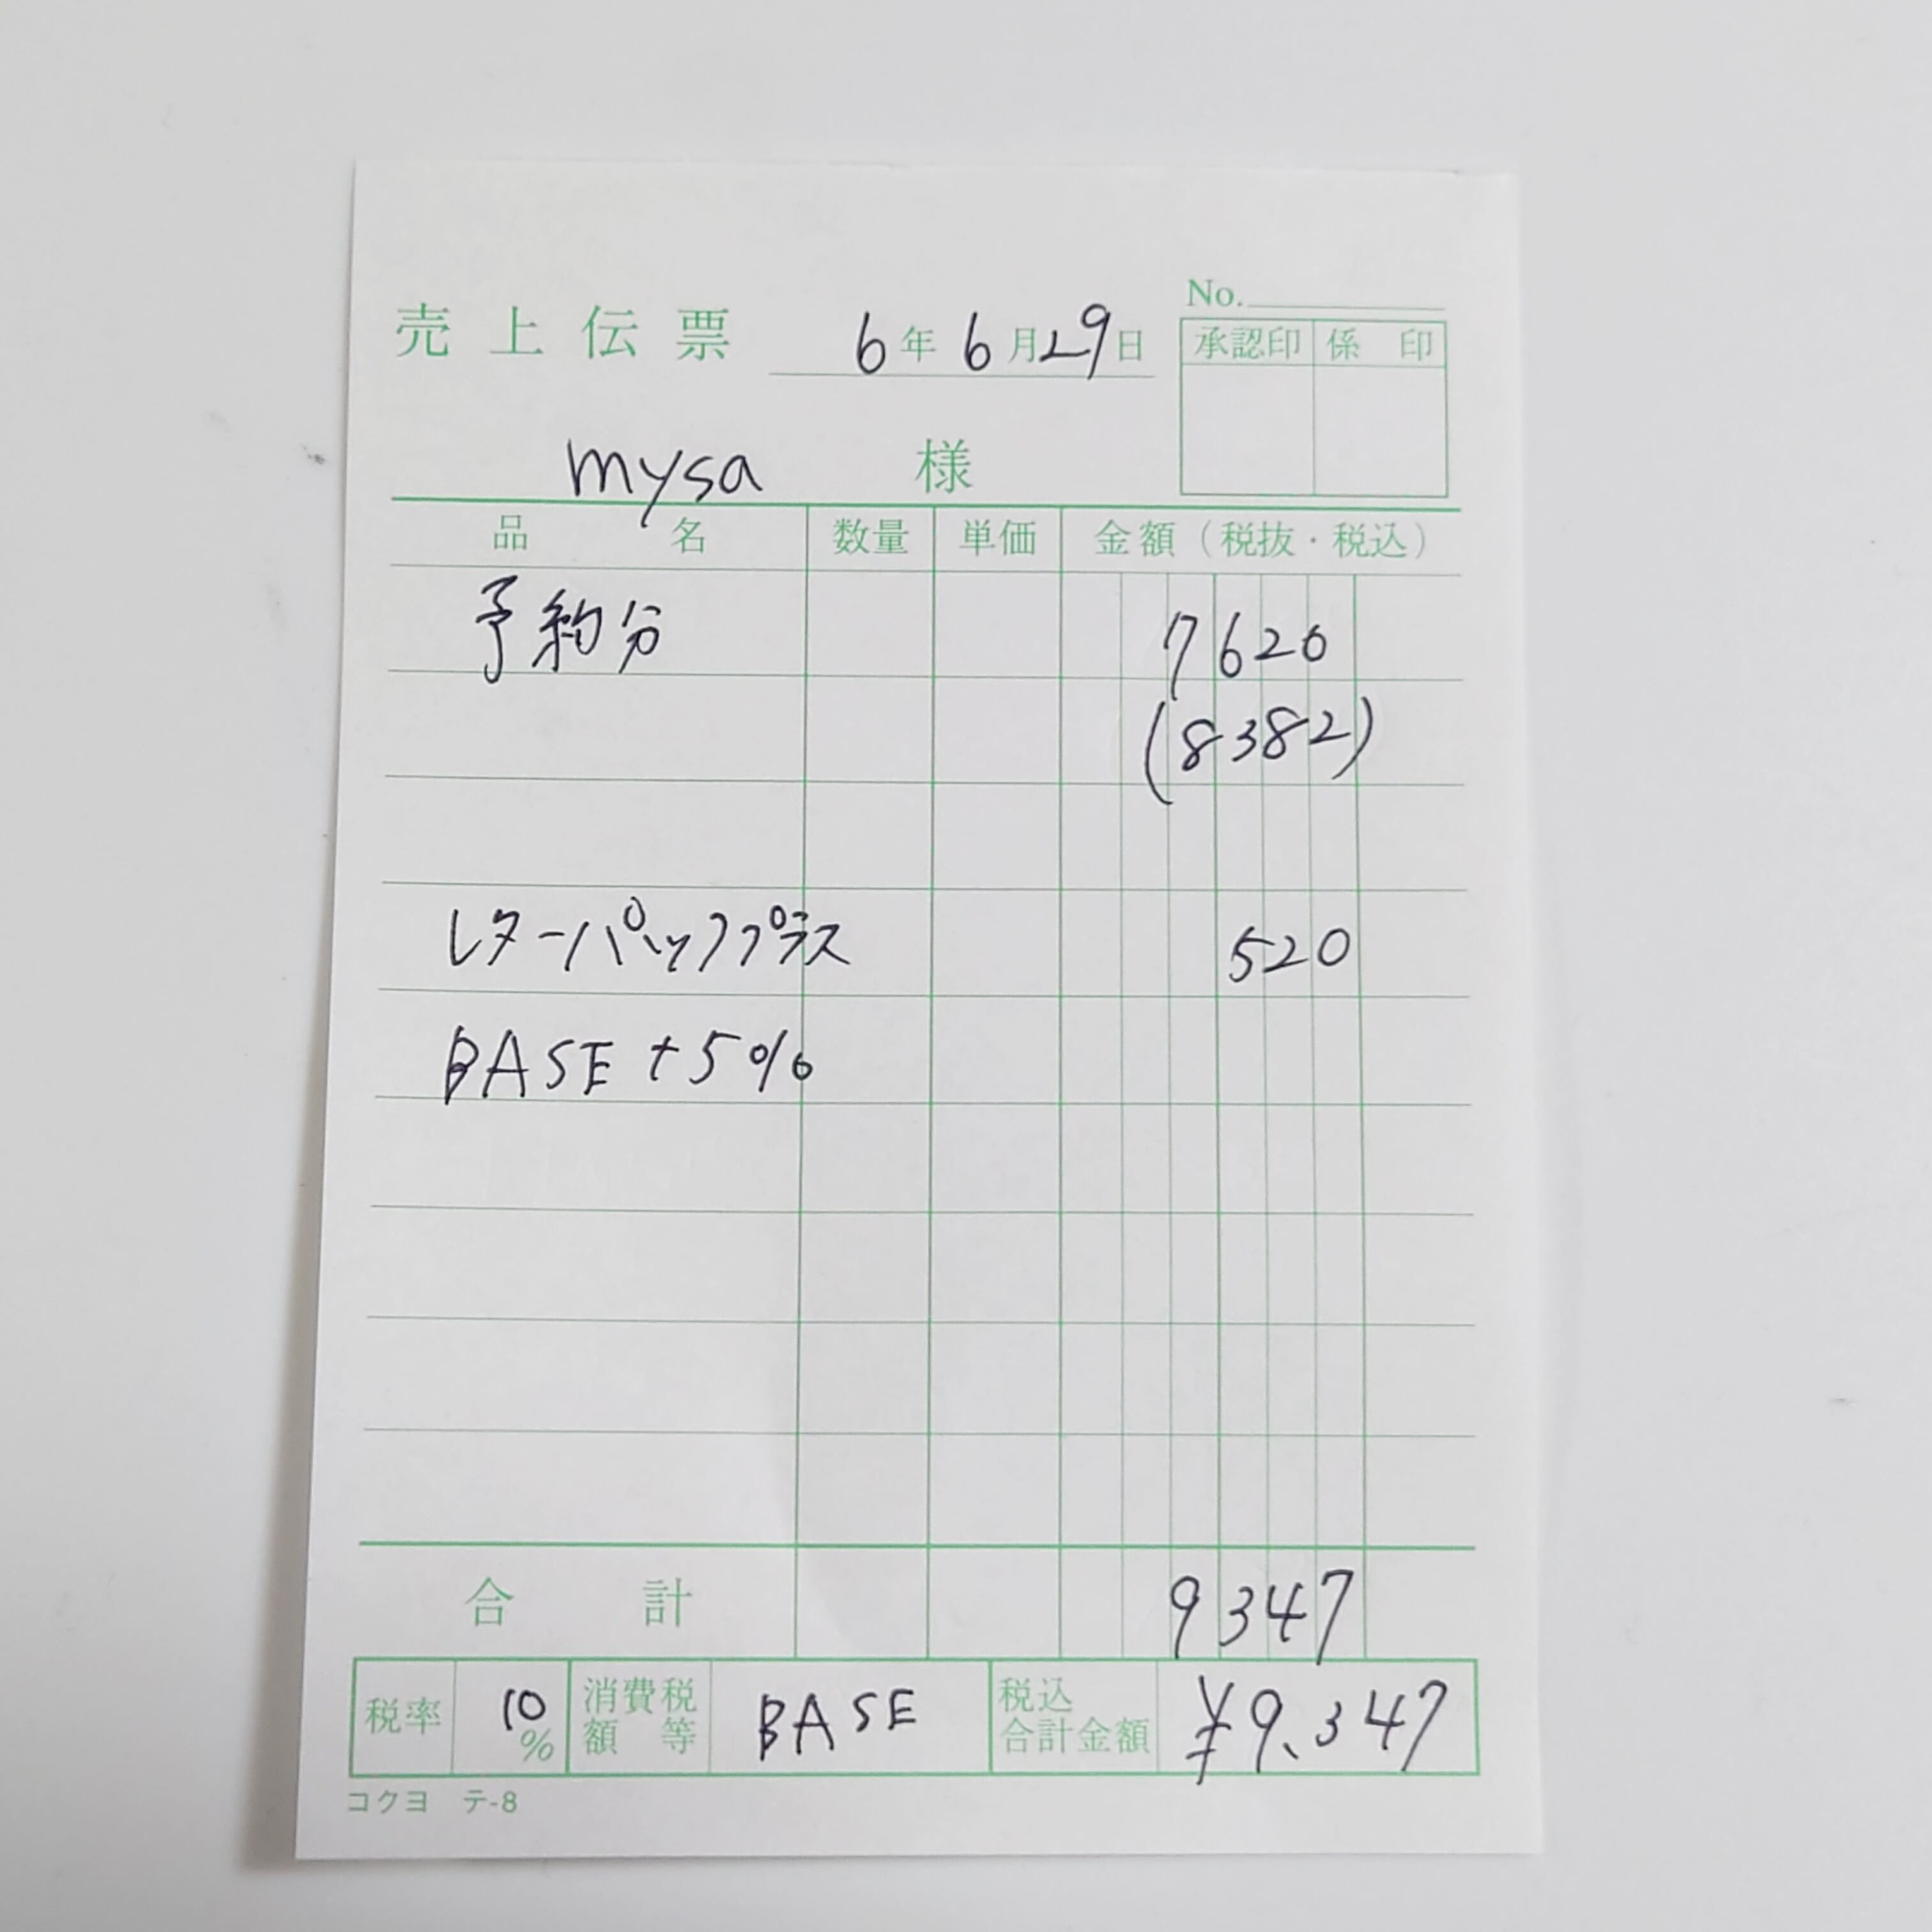 No.
売上伝票 6年6月29日
承認印 係印
mysa 様
品名 数量 単価 金額（税抜・税込）
予約分 7620
(8382)
レターパックプラス 520
BASE +5%
合計 9347
税率 10% 消費税額等 BASE 税込合計金額 ¥9,347
コクヨ テ-8